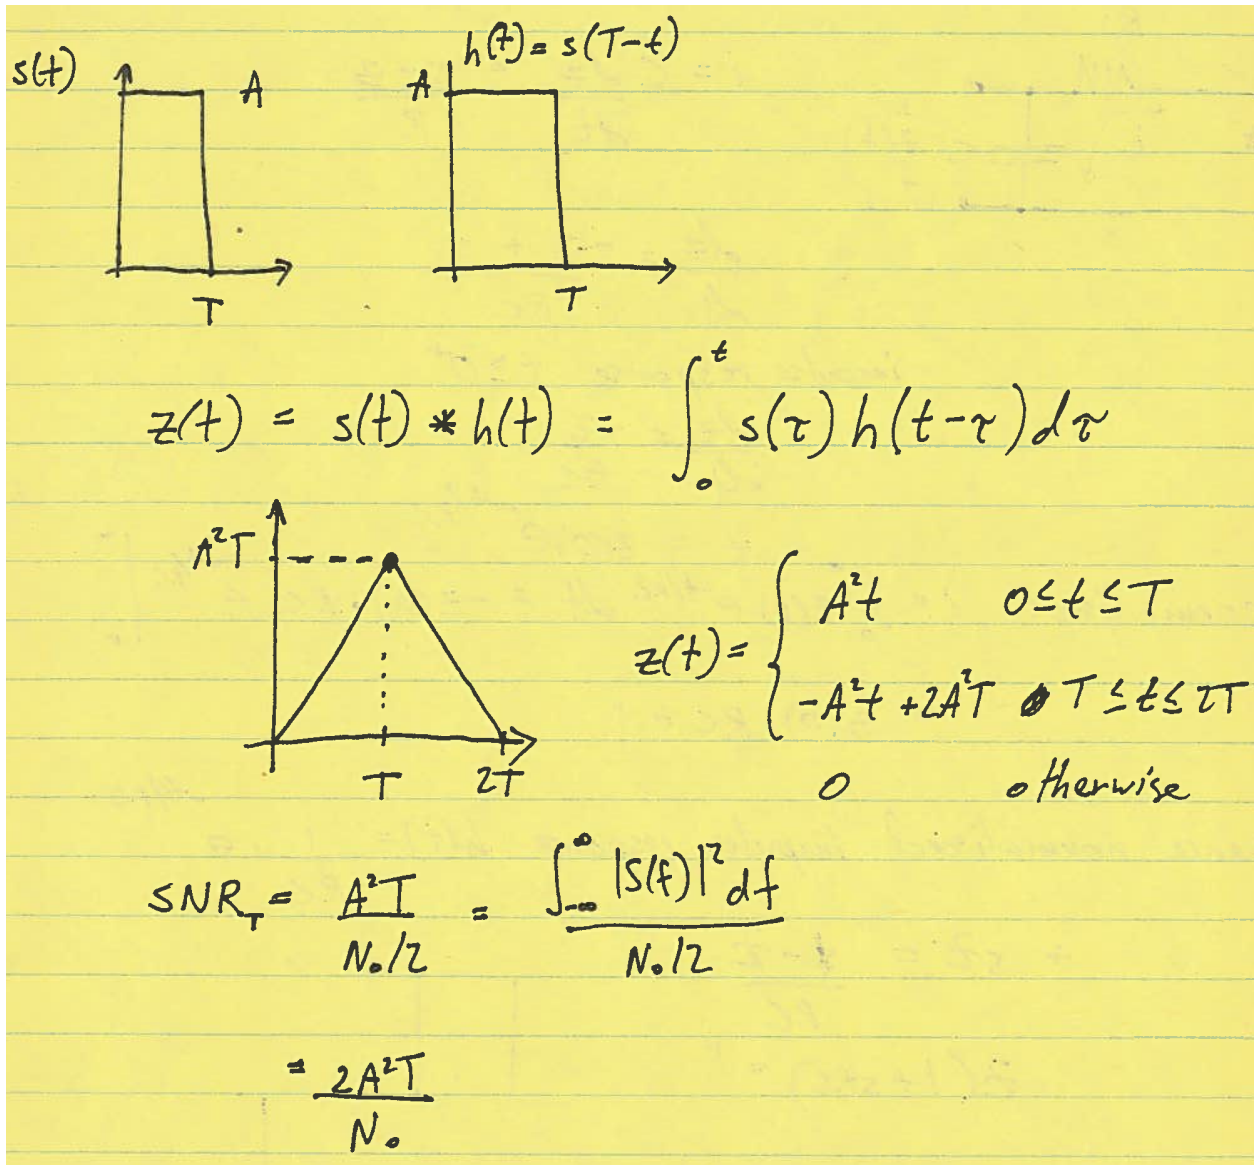 s(t) A
h(t) = s(T-t)
A
T
T
z(t) = s(t) * h(t) = ∫₀ᵗ s(τ) h(t-τ) dτ
A²T
T 2T
z(t) = { A²t 0≤t≤T
-A²t + 2A²T T≤t≤2T
0 otherwise
SNR_T = A²T / (N₀/2) = ∫_{-∞}^{∞} |S(f)|² df / (N₀/2)
= 2A²T / N₀